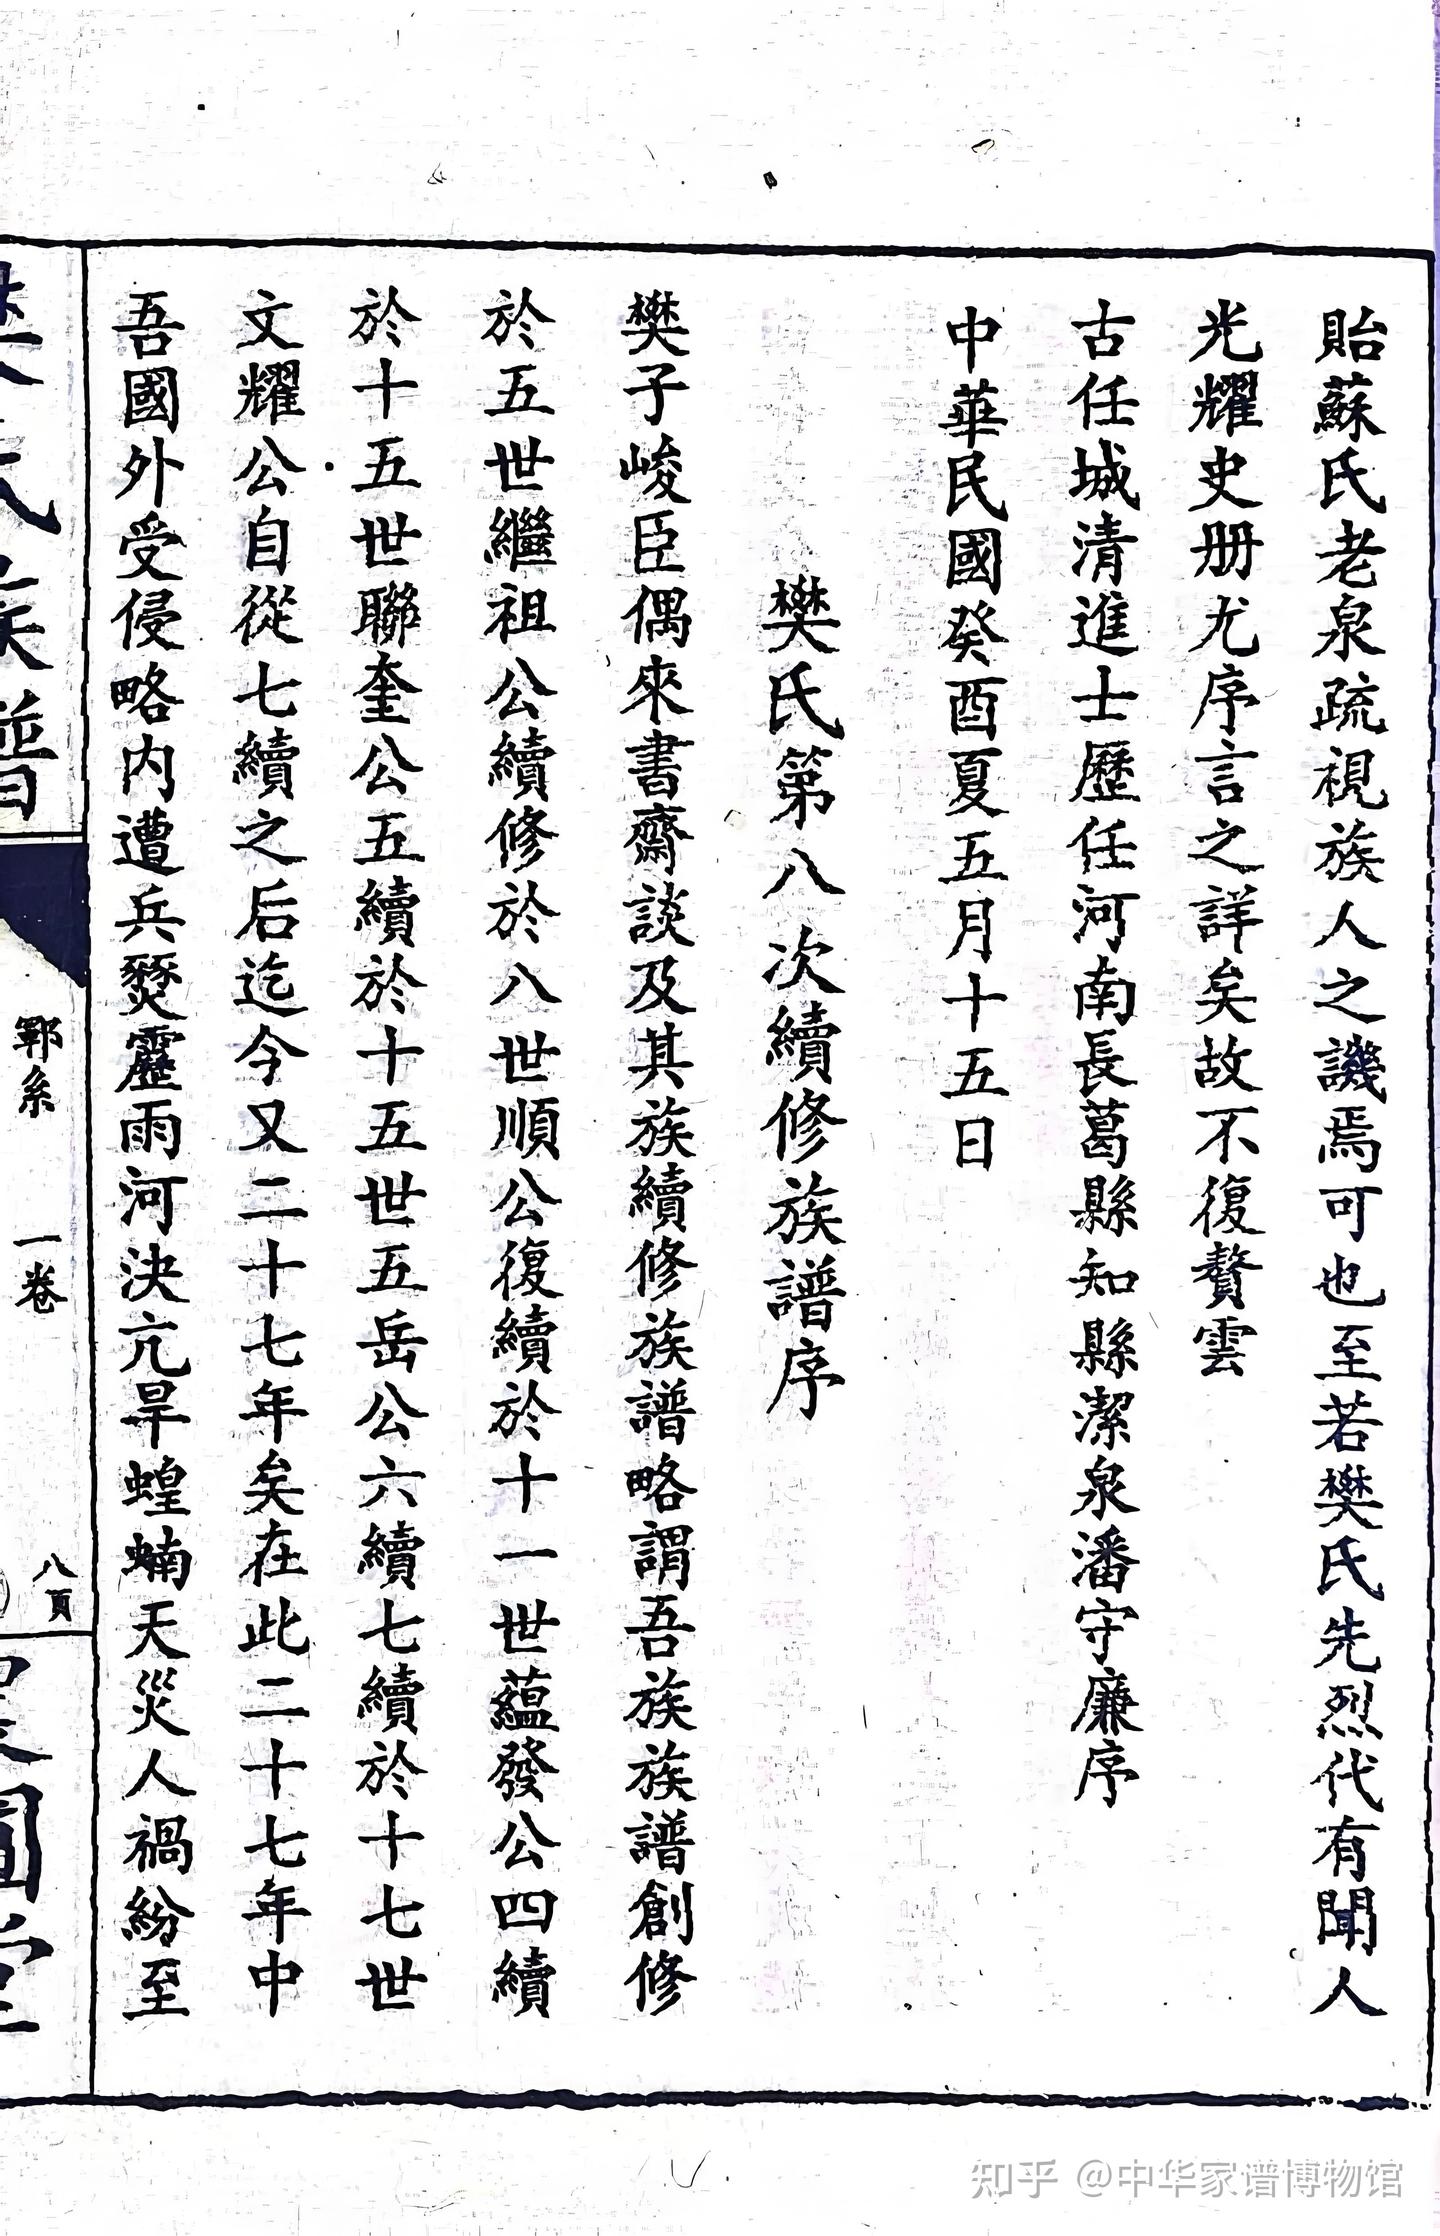 貽蘇氏老泉疏視族人之譏焉可也至若樊氏先烈代有聞人
光耀史册尤序言之詳矣故不復贅雲
古任城清進士歷任河南長葛縣知縣潔泉潘守廉序
中華民國癸酉夏五月十五日
樊氏第八次續修族譜序
樊子峻臣偶來書齋談及其族續修族譜略謂吾族族譜創修
於五世繼祖公續修於八世順公復續於十一世蘊發公四續
於十五世聯奎公五續於十五世五岳公六續七續於十七世
文耀公自從七續之后迄今又二十七年矣在此二十七年中
吾國外受侵略内遭兵燹靂雨河決亢旱蝗蝻天災人禍紛至
樊氏族譜
鄆系
一卷
八頁
知乎 @中华家谱博物馆